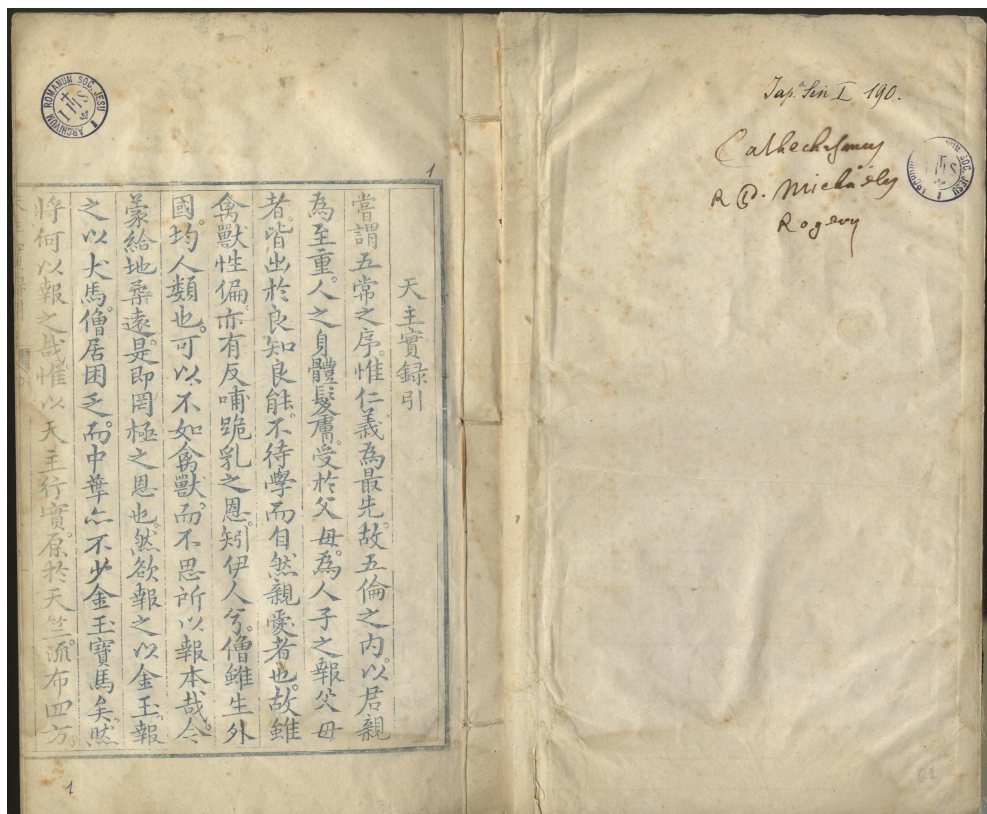 Jap.ª Sin I 190.
Cathechismus
R. P. Michaëlis
Rogerij
ARCHIVUM ROMANUM SOC. JESU
IHS
1
天主實録引
嘗謂五常之序。惟仁義為最先。故五倫之内。以君親
為至重。人之身體髮膚。受於父母。為人子之報父母
者。皆出於良知良能。不待學而自然親愛者也。故雖
禽獸性偏。亦有反哺跪乳之恩。矧伊人兮。僧雖生外
國。均人類也。可以不如禽獸。而不思所以報本哉。今
蒙給地柔遠。是即罔極之恩也。然欲報之以金玉。報
之以犬馬。僧居困乏。而中華亦不少金玉寶馬矣。然
將何以報之哉。惟以天主行實。原於天竺。流布四方。
1